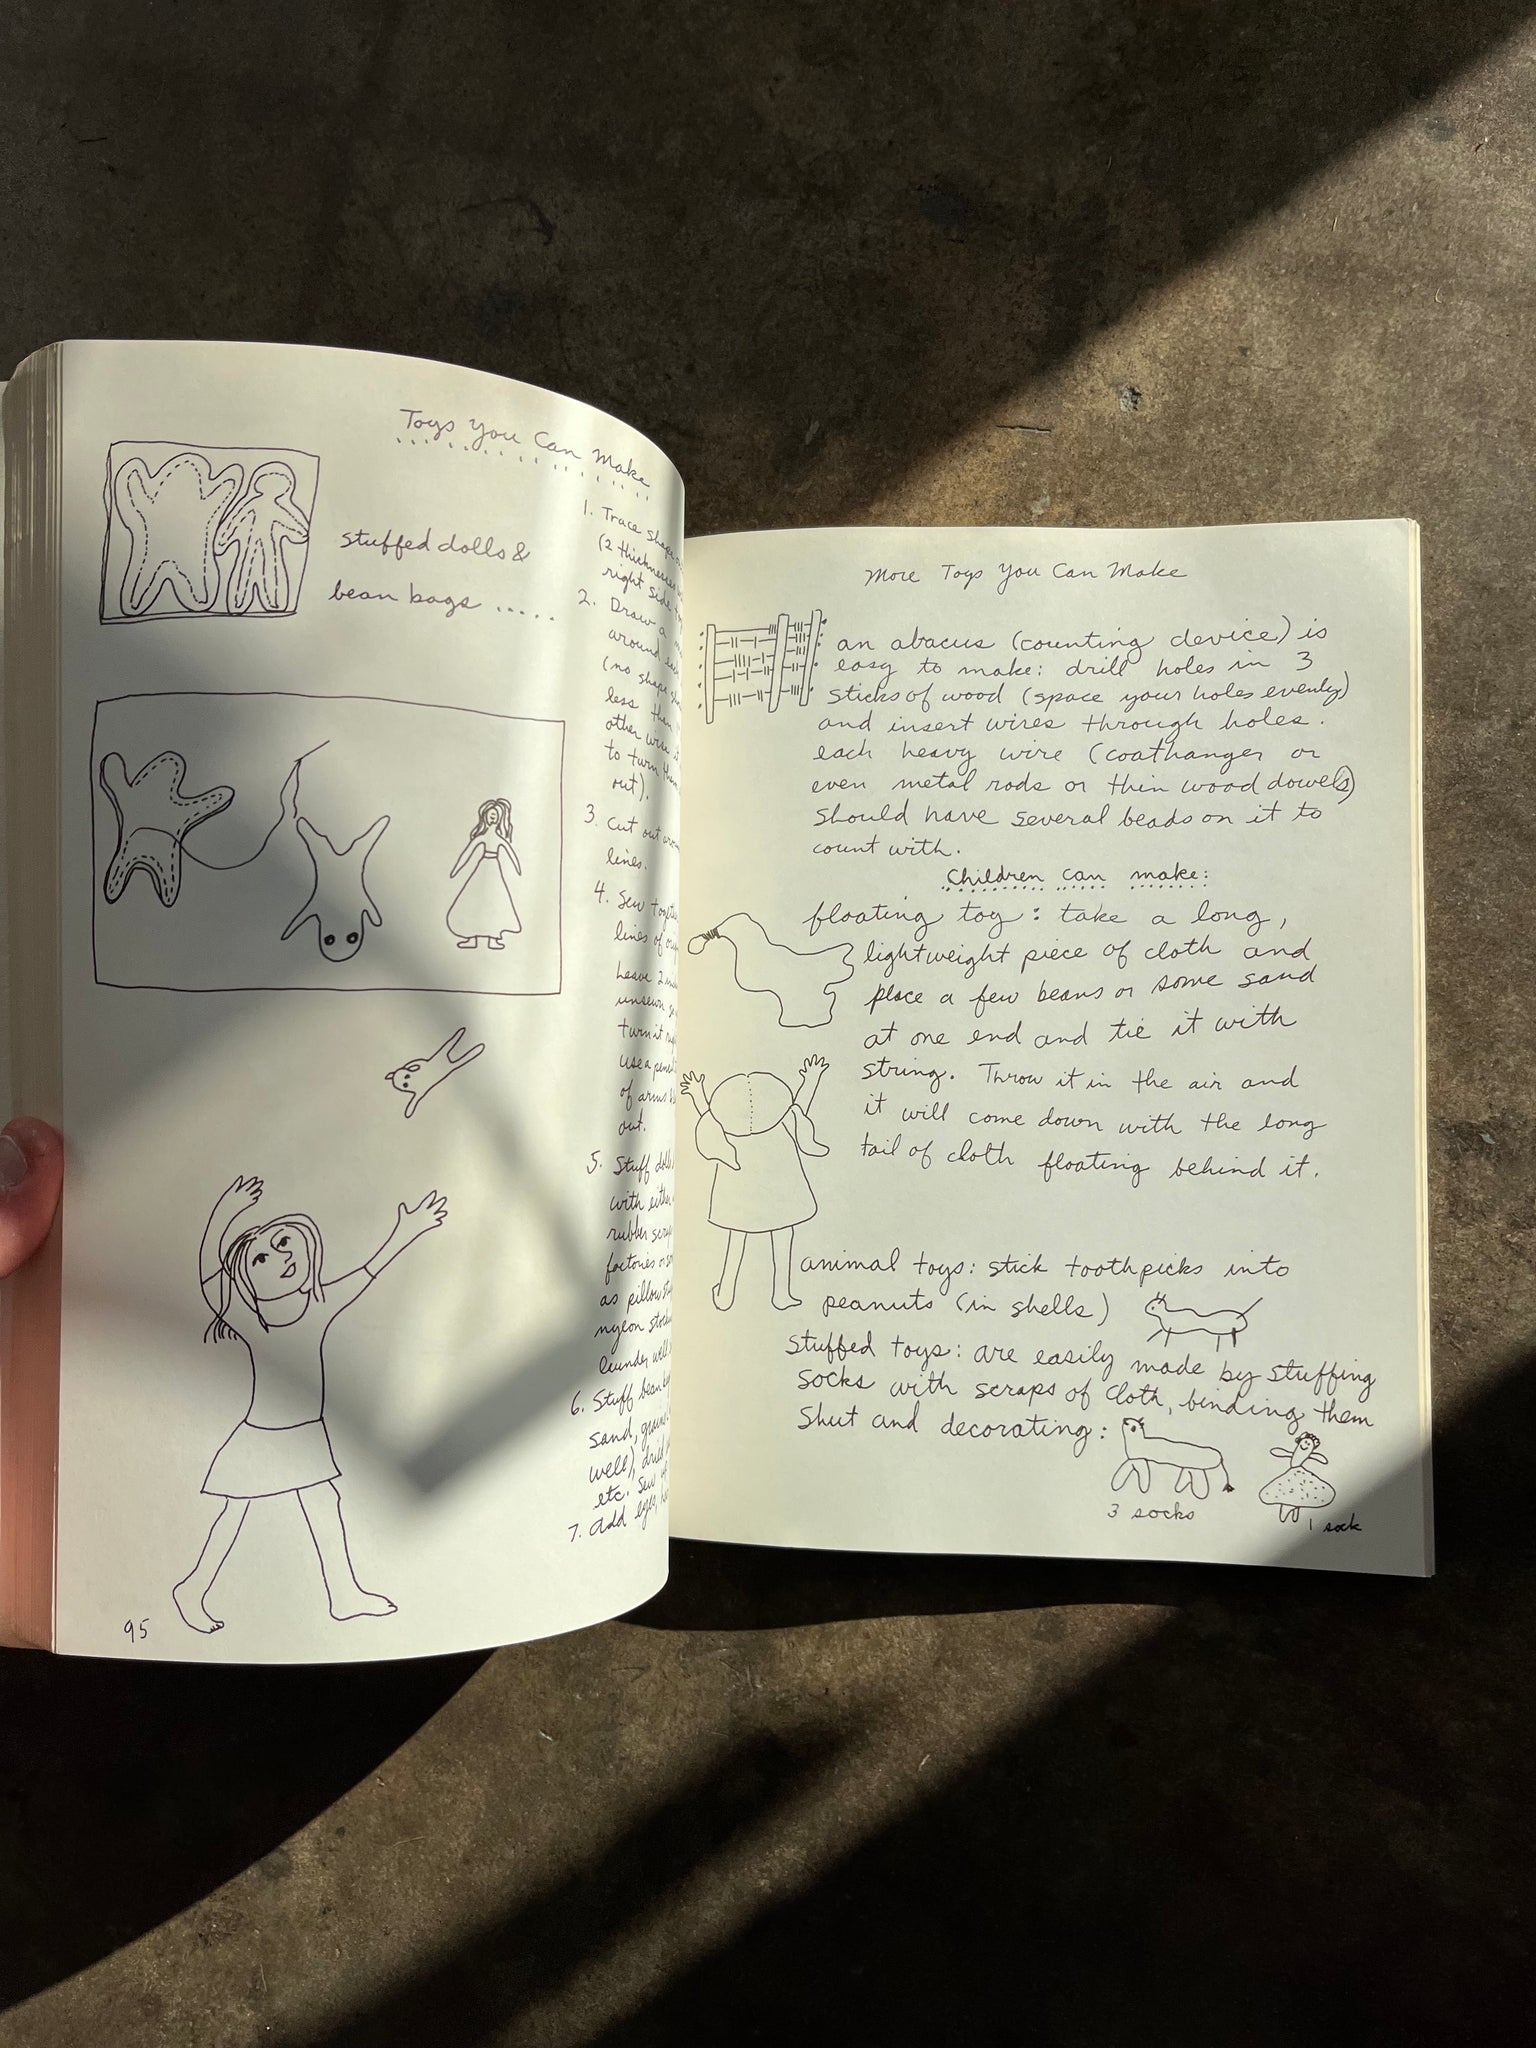 Toys You Can Make
stuffed dolls &
bean bags .....
1. Trace shape
(2 thicknesses
right side
2. Draw a
around
(no shape
less than
other wise it
to turn them
out).
3. Cut out
lines.
4. Sew together
lines of
leave 2
unsewn
turn it
use a pencil
of arms &
out.
5. Stuff dolls
with either
rubber scraps
factories or
as pillow
nylon
launder well
6. Stuff bean bags
sand,
well), dried
etc. Sew
7. Add eyes,
95
More Toys You Can Make
an abacus (counting device) is
easy to make: drill holes in 3
sticks of wood (space your holes evenly)
and insert wires through holes.
each heavy wire (coathanger or
even metal rods or thin wood dowels)
should have several beads on it to
count with.
Children can make:
floating toy: take a long,
lightweight piece of cloth and
place a few beans or some sand
at one end and tie it with
string. Throw it in the air and
it will come down with the long
tail of cloth floating behind it.
animal toys: stick toothpicks into
peanuts (in shells)
stuffed toys: are easily made by stuffing
socks with scraps of cloth, binding them
shut and decorating:
3 socks
1 sock